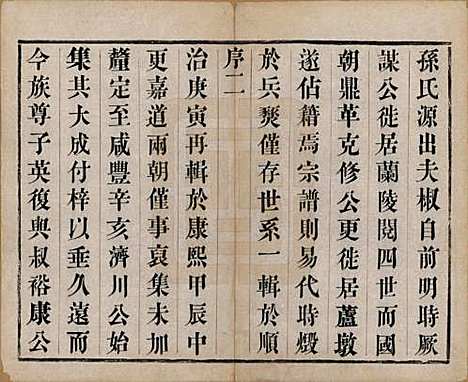 孫氏源出夫椒自前明時厥
謀公徙居蘭陵閱四世而國
朝鼎革克修公更徙居蘆墩
遂佔籍焉宗譜則易代時燬
於兵燹僅存世系一輯於順
序二
治庚寅再輯於康熙甲辰中
更嘉道兩朝僅事裒集未加
釐定至咸豐辛亥濟川公始
集其大成付梓以垂久遠而
今族尊子英復與叔裕康公